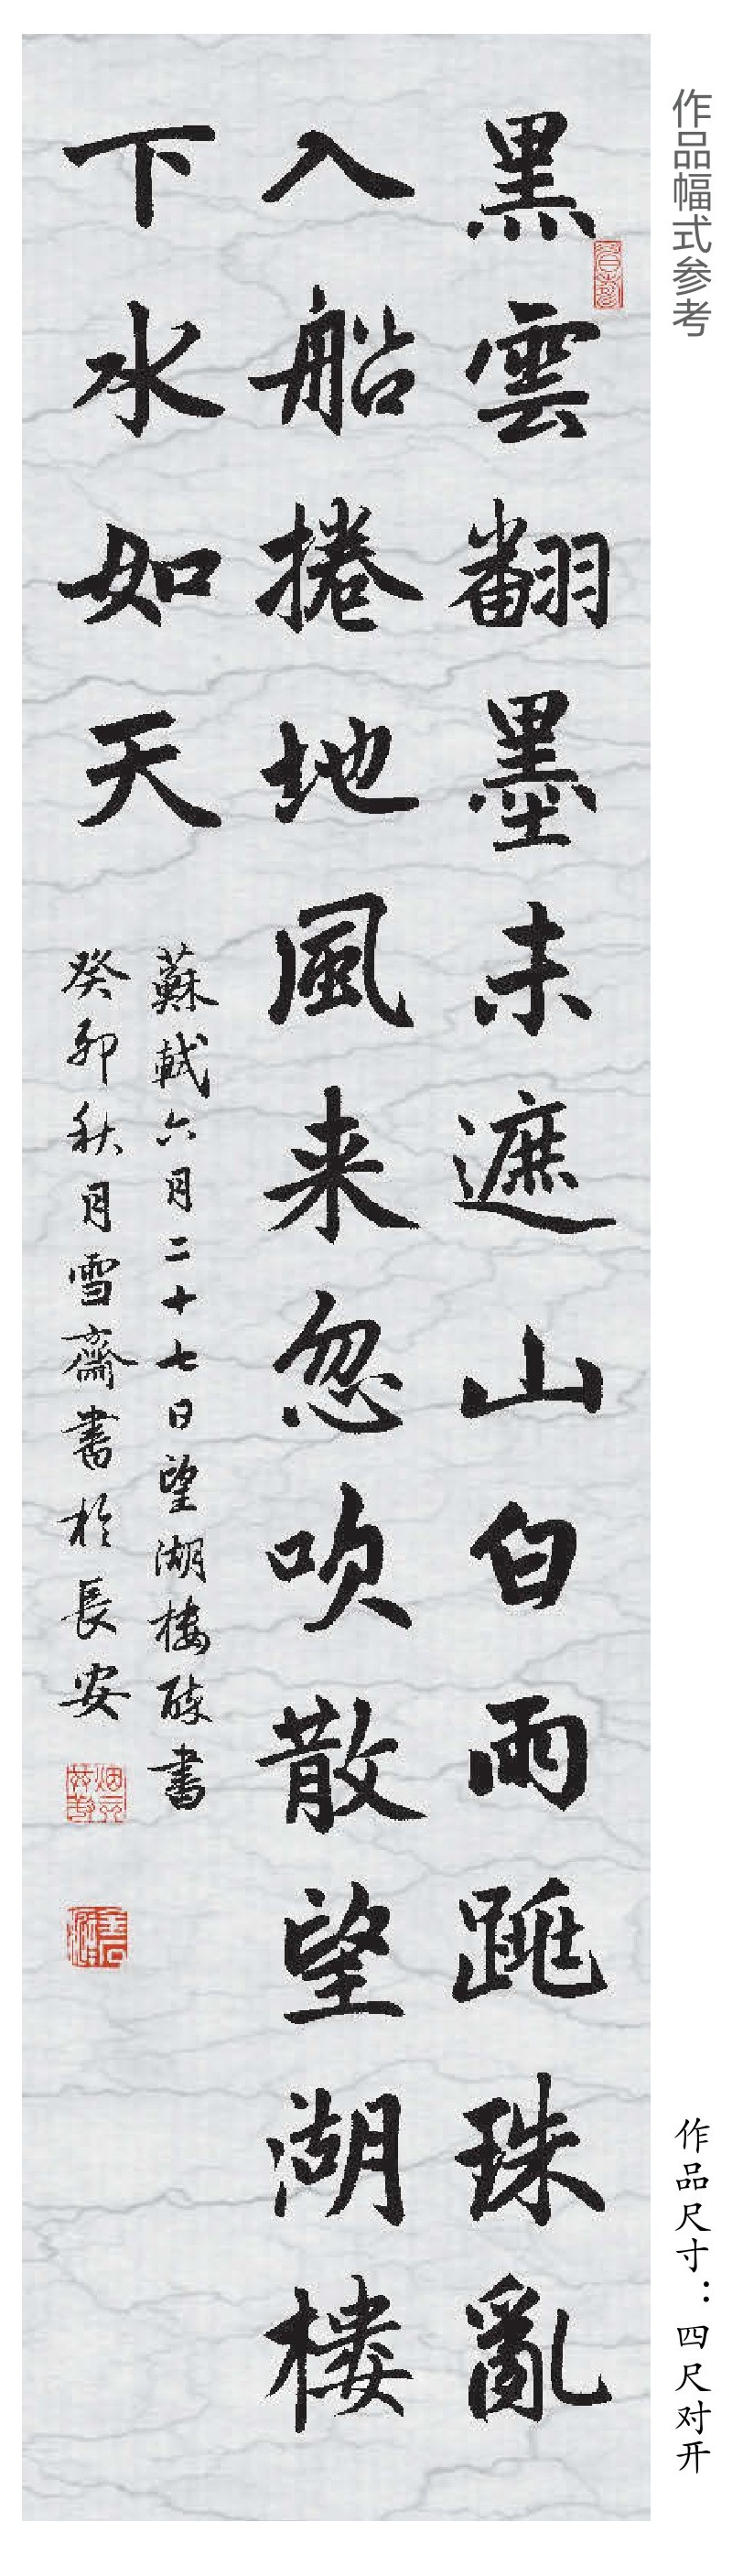 作品幅式参考
黑雲翻墨未遮山白雨跳珠亂
入船捲地風来忽吹散望湖楼
下水如天
蘇軾六月二十七日望湖楼醉書
癸卯秋月雪齋書於長安
作品尺寸：四尺对开